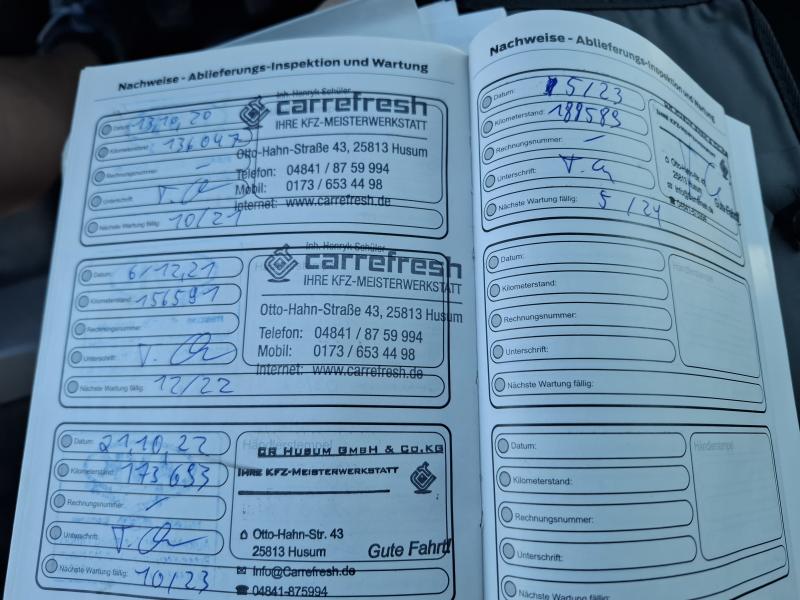 Nachweise - Ablieferungs-Inspektion und Wartung
Datum: 13,10,20
Kilometerstand: 136047
Rechnungsnummer: -
Unterschrift:
Nächste Wartung fällig: 10/21
Inh. Henryk Schüler
carrefresh
IHRE KFZ-MEISTERWERKSTATT
Otto-Hahn-Straße 43, 25813 Husum
Telefon: 04841 / 87 59 994
Mobil: 0173 / 653 44 98
Internet: www.carrefresh.de
Datum: 6/12,21
Kilometerstand: 156591
Rechnungsnummer:
Unterschrift:
Nächste Wartung fällig: 12/22
Inh. Henryk Schüler
carrefresh
IHRE KFZ-MEISTERWERKSTATT
Otto-Hahn-Straße 43, 25813 Husum
Telefon: 04841 / 87 59 994
Mobil: 0173 / 653 44 98
Internet: www.carrefresh.de
Datum: 21,10,22
Kilometerstand: 173693
Rechnungsnummer: -
Unterschrift:
Nächste Wartung fällig: 10/23
Händlerstempel
CR Husum GmbH & Co.KG
IHRE KFZ-MEISTERWERKSTATT
Otto-Hahn-Str. 43
25813 Husum
Gute Fahrt!
Info@Carrefresh.de
04841-875994
Nachweise - Ablieferungs-Inspektion und Wartung
Datum: 5/23
Kilometerstand: 189589
Rechnungsnummer: -
Unterschrift:
Nächste Wartung fällig: 5/24
Otto-Hahn-Str.
25813 Husum
Gute Fahrt!
Datum:
Kilometerstand:
Rechnungsnummer:
Unterschrift:
Nächste Wartung fällig:
Händlerstempel
Datum:
Kilometerstand:
Rechnungsnummer:
Unterschrift:
Nächste Wartung fällig:
Händlerstempel